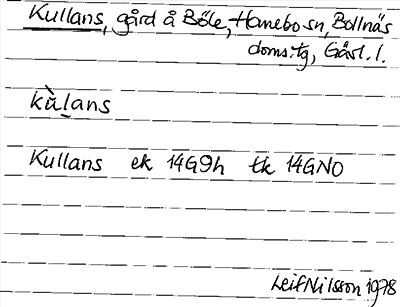 Kullans, gård å Böle, Hanebo sn, Bollnäs
doms:tg, Gävl. l.
kù̱lans
Kullans ek 14G9h tk 14GNO
Leif Nilsson 1978